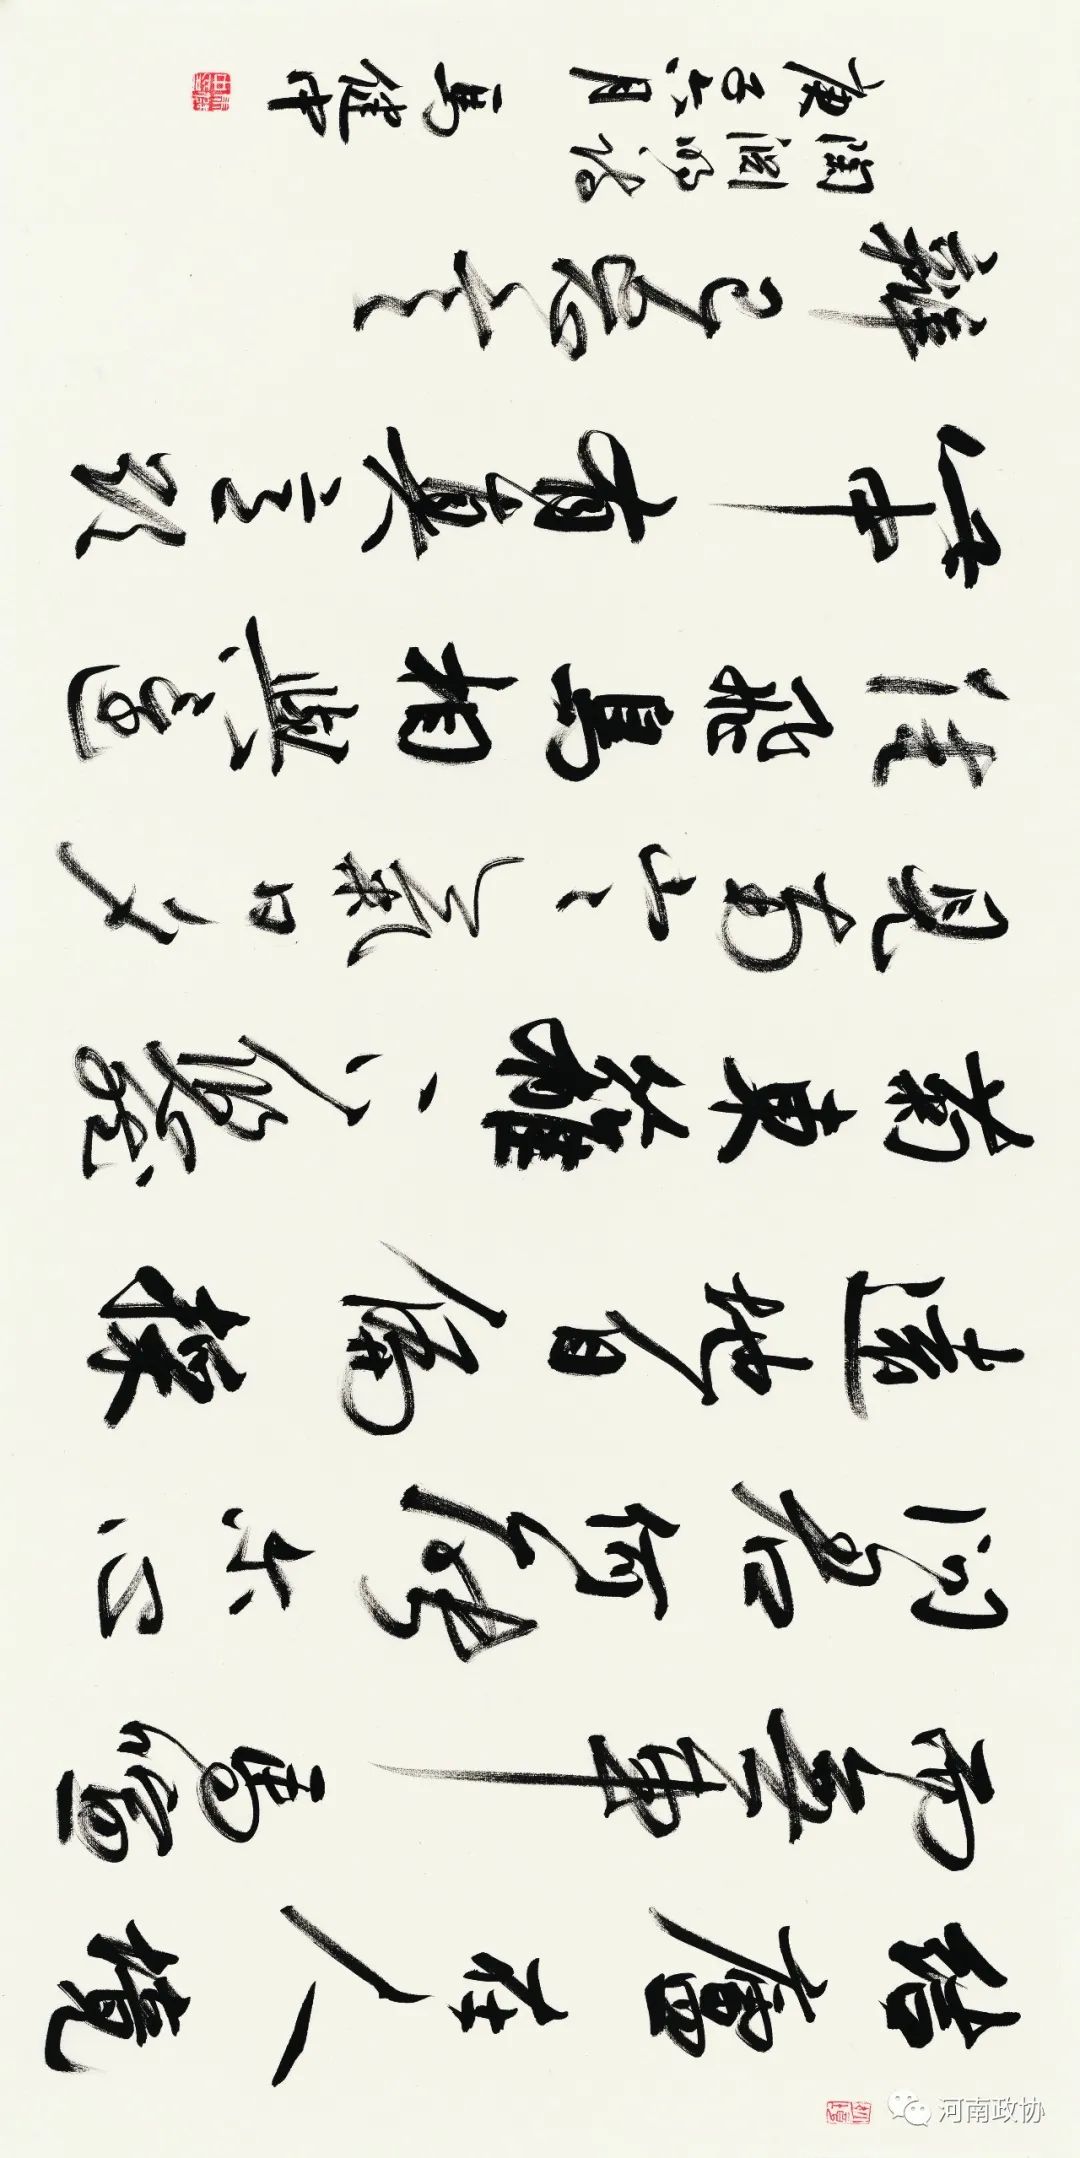 結廬在人境
而無車馬喧
問君何能尔心
遠地自偏採
菊東籬下悠然
見南山山氣日夕
佳飛鳥相與還
此中有真意欲
辨已忘言
陶淵明詩
庚子六月馬健中
河南政协